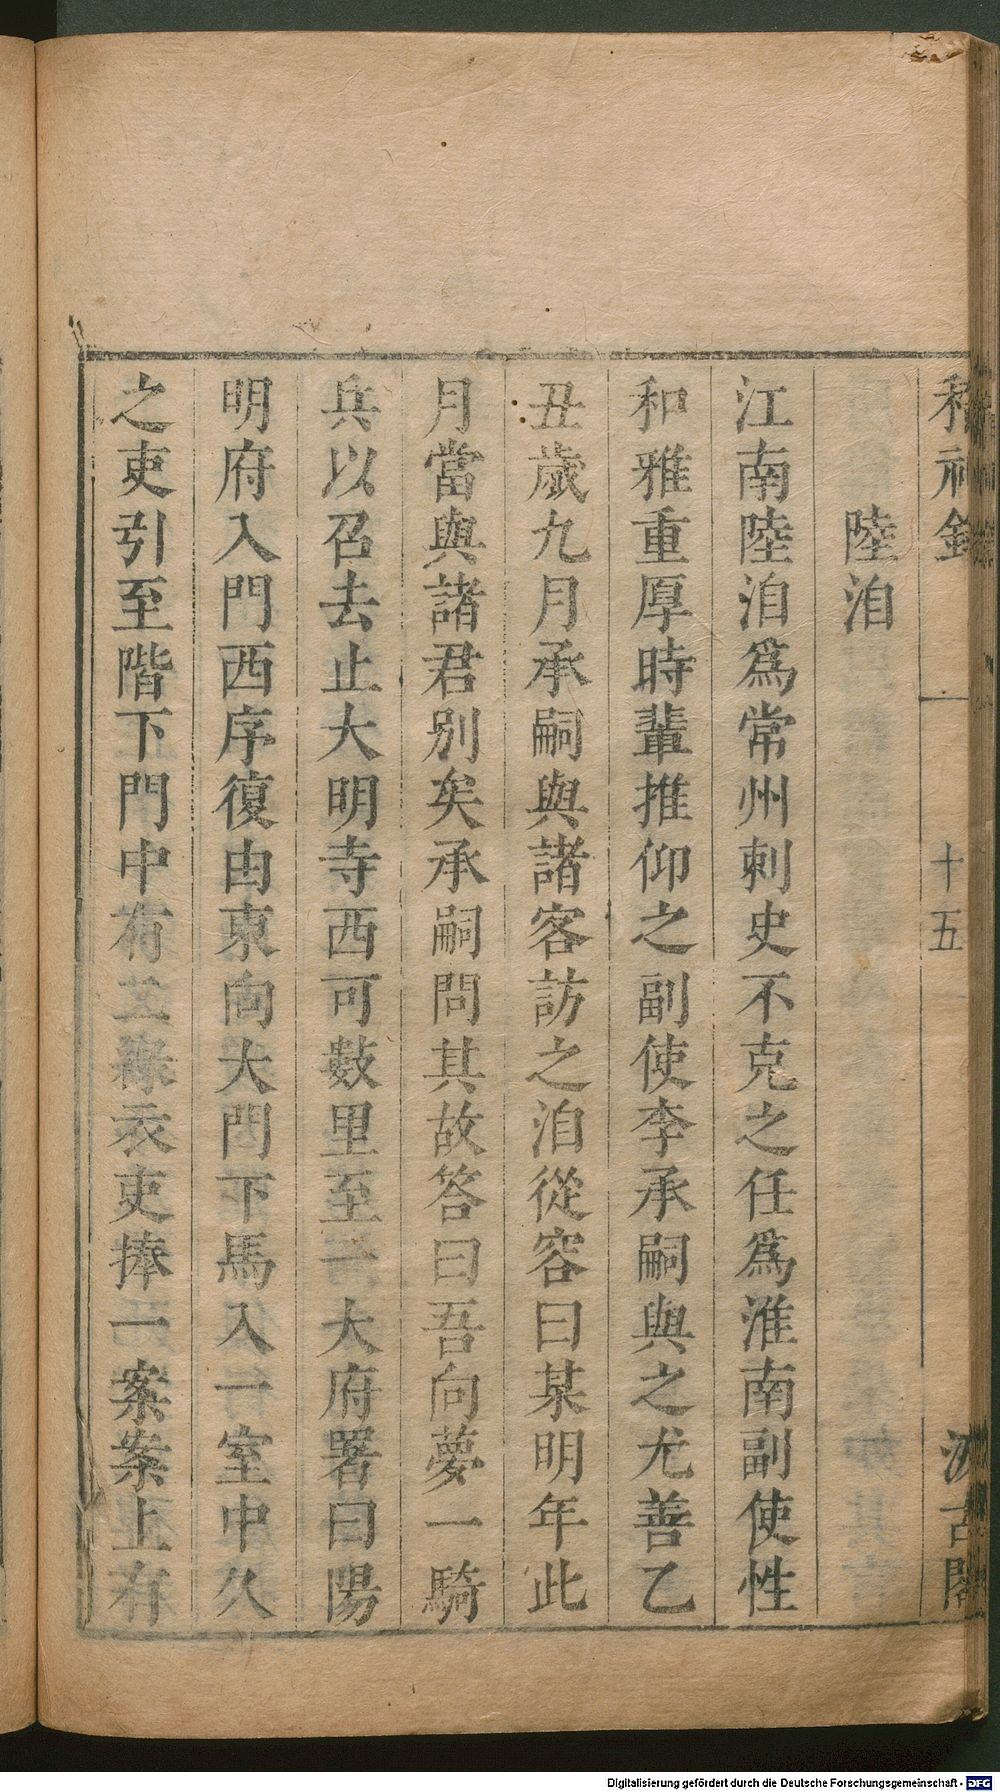 稽神錄
十五
汲古閣
陸洎
江南陸洎爲常州刺史不克之任爲淮南副使性
和雅重厚時輩推仰之副使李承嗣與之尤善乙
丑歲九月承嗣與諸客訪之洎從容曰某明年此
月當與諸君別矣承嗣問其故答曰吾向夢一騎
兵以召去止大明寺西可數里至一大府署曰陽
明府入門西序復由東向大門下馬入一室中久
之吏引至階下門中有二綠衣吏捧一案案上有
Digitalisierung gefördert durch die Deutsche Forschungsgemeinschaft - DFG